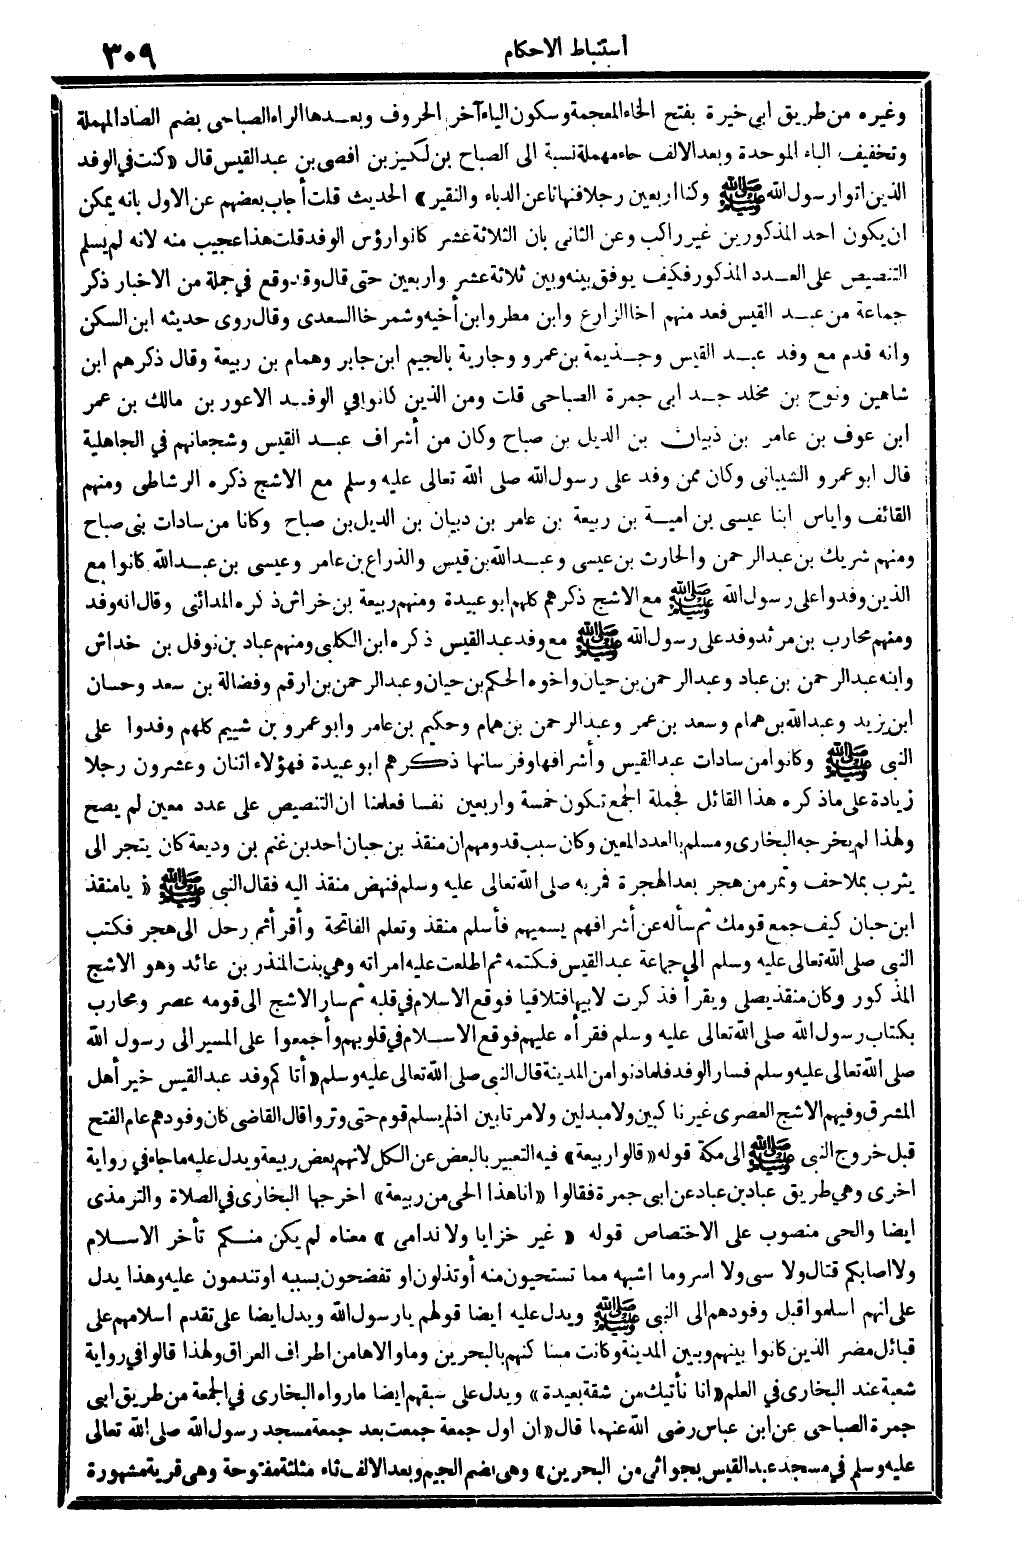 استنباط الاحكام
٣٠٩
وغيره من طريق ابي خيرة بفتح الخاء المعجمة وسكون الياء آخر الحروف وبعدها الراء الصباحى بضم الصاد المهملة
وتخفيف الباء الموحدة وبعد الالف حاء مهملة نسبة الى الصباح بن لكيز بن افصى بن عبد القيس قال « كنت في الوفد
الذين اتوا رسول الله ﷺ وكنا اربعين رجلا فنهانا عن الدباء والنقير » الحديث قلت أجاب بعضهم عن الاول بانه يمكن
ان يكون احد المذكورين غير راكب وعن الثانى بان الثلاثة عشر كانوا رؤس الوفد قلت هذا عجيب منه لانه لم يسلم
التنصيص على العدد المذكور فكيف يوفق بينه وبين ثلاثة عشر واربعين حتى قال وقد وقع في جملة من الاخبار ذكر
جماعة من عبد القيس فعد منهم اخا الزارع وابن مطر وابن أخيه وشمرخا السعدى وقال روى حديثه ابن السكن
وانه قدم مع وفد عبد القيس وجذيمة بن عمرو وجارية بالجيم ابن جابر وهمام بن ربيعة وقال ذكرهم ابن
شاهين ونوح بن مخلد جد ابى جمرة الصباحى قلت ومن الذين كانوا في الوفد الاعور بن مالك بن عمر
ابن عوف بن عامر بن ذبيان بن الديل بن صباح وكان من أشراف عبد القيس وشجعانهم في الجاهلية
قال ابو عمرو الشيبانى وكان ممن وفد على رسول الله صلى الله تعالى عليه وسلم مع الاشج ذكره الرشاطى ومنهم
القائف واياس ابنا عيسى بن امية بن ربيعة بن عامر بن دبيان بن الديل بن صباح وكانا من سادات بنى صباح
ومنهم شريك بن عبد الرحمن والحارث بن عيسى وعبد الله بن قيس والذراع بن عامر وعيسى بن عبد الله كانوا مع
الذين وفدوا على رسول الله ﷺ مع الاشج ذكرهم كلهم ابو عبيدة ومنهم ربيعة بن خراش ذكره المدائنى وقال انه وفد
ومنهم محارب بن مرثد وفد على رسول الله ﷺ مع وفد عبد القيس ذكره ابن الكلبى ومنهم عباد بن نوفل بن خداش
وابنه عبد الرحمن بن عباد وعبد الرحمن بن حيان واخوه الحكم بن حيان وعبد الرحمن بن ارقم وفضالة بن سعد وحسان
ابن يزيد وعبد الله بن همام وسعد بن عمر وعبد الرحمن بن همام وحكيم بن عامر وابو عمرو بن شييم كلهم وفدوا على
النبى ﷺ وكانوا من سادات عبد القيس وأشرافها وفرسانها ذكرهم ابو عبيدة فهؤلاء اثنان وعشرون رجلا
زيادة على ماذكره هذا القائل فجملة الجمع تكون خمسة واربعين نفسا فعلمنا ان التنصيص على عدد معين لم يصح
ولهذا لم يخرجه البخارى ومسلم بالعدد المعين وكان سبب قدومهم ان منقذ بن حبان احد بن غنم بن وديعة كان يتجر الى
يثرب بملاحف وتمر من هجر بعد الهجرة فمر به صلى الله تعالى عليه وسلم فنهض منقذ اليه فقال النبى ﷺ « يا منقذ
ابن حبان كيف جمع قومك ثم سأله عن أشرافهم يسميهم فأسلم منقذ وتعلم الفاتحة وأقرأ ثم رحل الى هجر فكتب
النبى صلى الله تعالى عليه وسلم الى جماعة عبد القيس فكتمه ثم اطلعت عليه امراته وهي بنت المنذر بن عائد وهو الاشج
المذكور وكان منقذ يصلى ويقرأ فذكرت لابيها فتلاقيا فوقع الاسلام في قلبه ثم سار الاشج الى قومه عصر ومحارب
بكتاب رسول الله صلى الله تعالى عليه وسلم فقرأه عليهم فوقع الاسلام في قلوبهم وأجمعوا على المسير الى رسول الله
صلى الله تعالى عليه وسلم فسار الوفد فلما دنوا من المدينة قال النبى صلى الله تعالى عليه وسلم « أتاكم وفد عبد القيس خير أهل
المشرق وفيهم الاشج العصرى غير ناكبين ولا مبدلين ولا مرتابين اذ لم يسلم قوم حتى وتروا قال القاضى كان وفودهم عام الفتح
قبل خروج النبى ﷺ الى مكة قوله « قالوا ربيعة » فيه التعبير بالبعض عن الكل لانهم بعض ربيعة ويدل عليه ما جاء في رواية
اخرى وهي طريق عباد بن عباد عن ابى جمرة فقالوا « انا هذا الحى من ربيعة » اخرجها البخارى في الصلاة والترمذى
ايضا والحى منصوب على الاختصاص قوله « غير خزايا ولا ندامى » معناه لم يكن منكم تأخر الاسلام
ولا اصابكم قتال ولا سى ولا اسر وما اشبهه مما تستحيون منه أو تذلون او تفضحون بسببه او تندمون عليه وهذا يدل
على انهم اسلموا قبل وفودهم الى النبى ﷺ ويدل عليه ايضا قولهم يا رسول الله ويدل ايضا على تقدم اسلامهم على
قبائل مضر الذين كانوا بينهم وبين المدينة وكانت مساكنهم بالبحرين وما والاها من اطراف العراق ولهذا قالوا في رواية
شعبة عند البخارى في العلم « انا نأتيك من شقة بعيدة » ويدل على سبقهم ايضا مارواه البخارى في الجمعة من طريق ابى
جمرة الصباحى عن ابن عباس رضى الله عنهما قال « ان اول جمعة جمعت بعد جمعة مسجد رسول الله صلى الله تعالى
عليه وسلم في مسجد عبد القيس بجواثى من البحرين » وهى بضم الجيم وبعد الالف ثاء مثلثة مفتوحة وهى قرية مشهورة